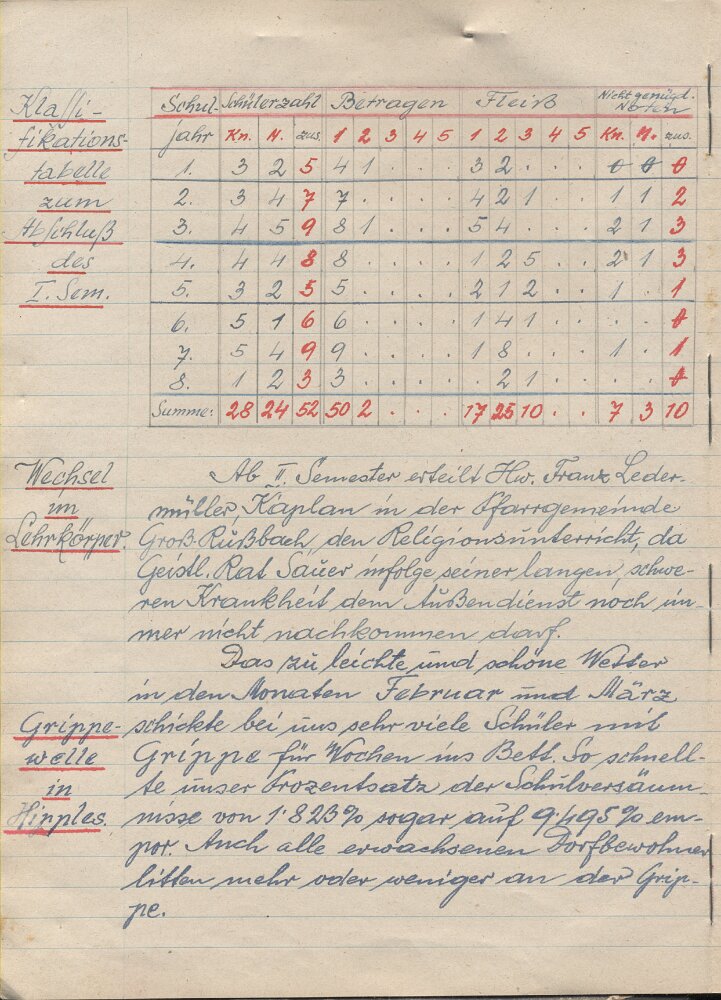 Klassi-
fikations-
tabelle
zum
Abschluß
des
I. Sem.
Schul- Schülerzahl Betragen Fleiß Nichtgenügd. Noten
jahr Kn. M. zus. 1 2 3 4 5 1 2 3 4 5 Kn. M. zus.
1. 3 2 5 4 1 . . . 3 2 . . . 0 0 0
2. 3 4 7 7 . . . . 4 2 1 . . 1 1 2
3. 4 5 9 8 1 . . . 5 4 . . . 2 1 3
4. 4 4 8 8 . . . . 1 2 5 . . 2 1 3
5. 3 2 5 5 . . . . 2 1 2 . . 1 . 1
6. 5 1 6 6 . . . . 1 4 1 . . . . 0
7. 5 4 9 9 . . . . 1 8 . . . 1 . 1
8. 1 2 3 3 . . . . . 2 1 . . . . 0
Summe: 28 24 52 50 2 . . . 17 25 10 . . 7 3 10
Wechsel
im
Lehrkörper.
Ab II. Semester erteilt Hw. Franz Leder-
müller, Kaplan in der Pfarrgemeinde
Groß-Rußbach, den Religionsunterricht, da
Geistl. Rat Sauer infolge seiner langen, schwe-
ren Krankheit dem Außendienst noch im-
mer nicht nachkommen darf.
Das zu leichte und schöne Wetter
in den Monaten Februar und März
Grippe-
welle
in
Hipples.
schickte bei uns sehr viele Schüler mit
Grippe für Wochen ins Bett. So schnell-
te unser Prozentsatz der Schulversäum-
nisse von 1·823% sogar auf 9·495% em-
por. Auch alle erwachsenen Dorfbewohner
litten mehr oder weniger an der Grip-
pe.